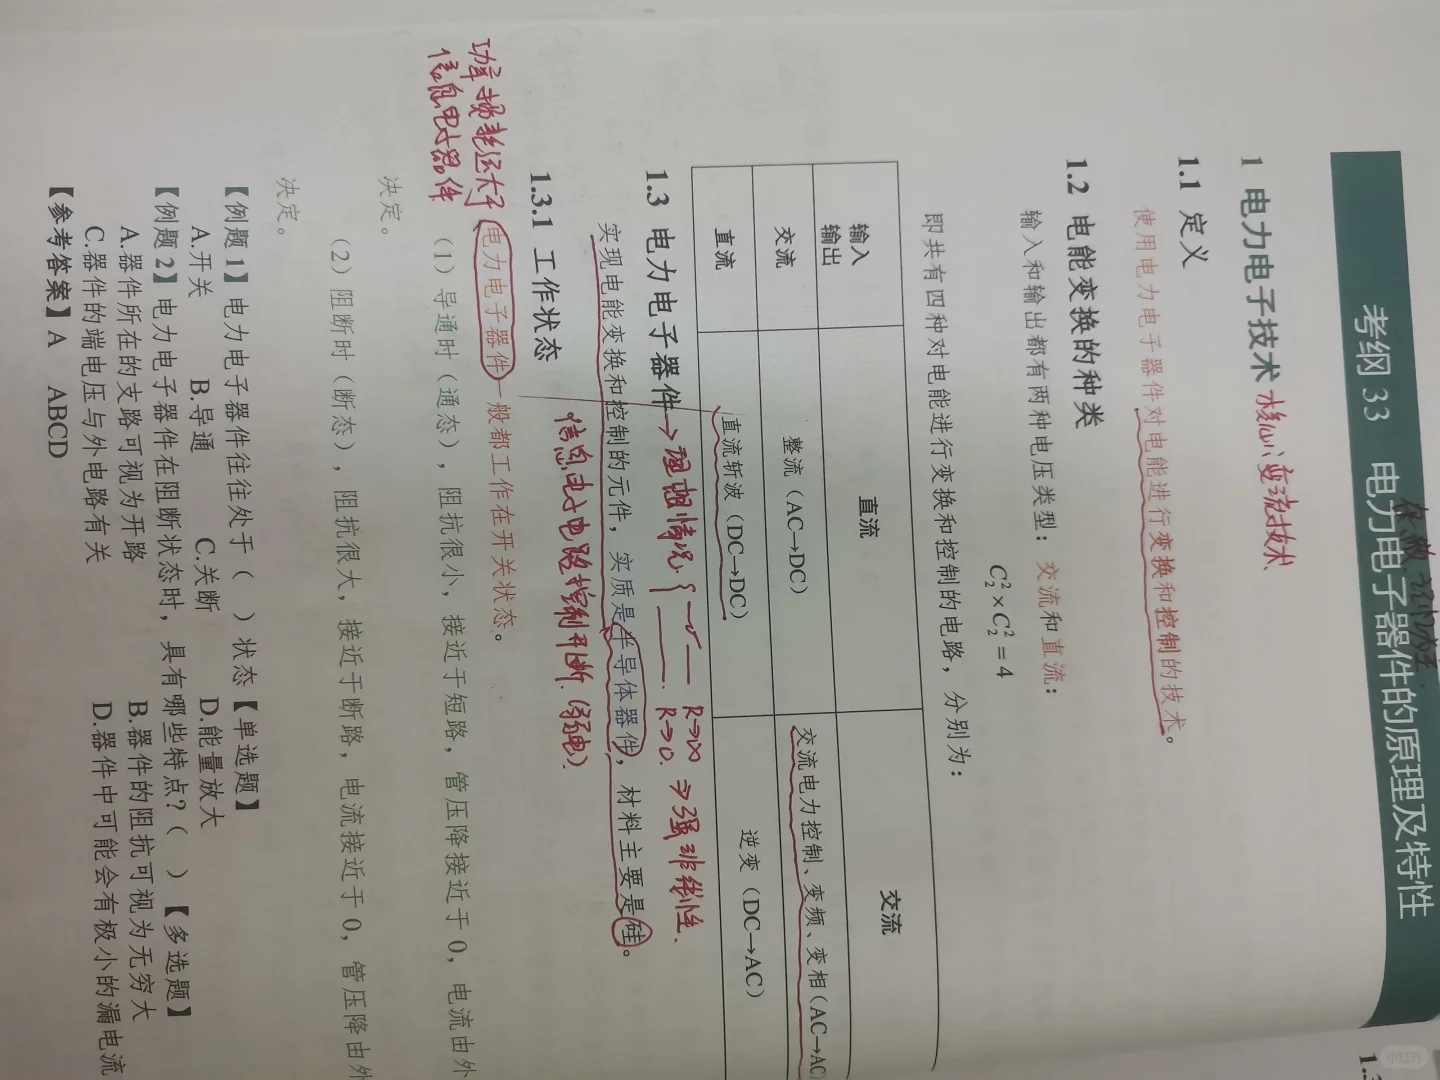 考纲 33 电力电子器件的原理及特性
1 电力电子技术 核心：变流技术
1.1 定义
使用电力电子器件对电能进行变换和控制的技术。
1.2 电能变换的种类
输入和输出都有两种电压类型：交流和直流：
C₂²×C₂²=4
即共有四种对电能进行变换和控制的电路，分别为：
输入
输出 直流 交流
交流 整流（AC→DC） 交流电力控制、变频、变相（AC→AC）
直流 直流斩波（DC→DC） 逆变（DC→AC）
1.3 电力电子器件→理想情况 R→∞ ⇒强非线性.
R→0.
实现电能变换和控制的元件，实质是半导体器件，材料主要是硅。
信息电子电路控制开断.(弱电)
1.3.1 工作状态
电力电子器件一般都工作在开关状态。
功率损耗远大于
信息电子器件
（1）导通时（通态），阻抗很小，接近于短路，管压降接近于 0，电流由外
决定。
（2）阻断时（断态），阻抗很大，接近于断路，电流接近于 0，管压降由外
决定。
【例题 1】电力电子器件往往处于（ ）状态【单选题】
A.开关 B.导通 C.关断 D.能量放大
【例题 2】电力电子器件在阻断状态时，具有哪些特点？（ ）【多选题】
A.器件所在的支路可视为开路 B.器件的阻抗可视为无穷大
C.器件的端电压与外电路有关 D.器件中可能会有极小的漏电流
【参考答案】A ABCD
小红书